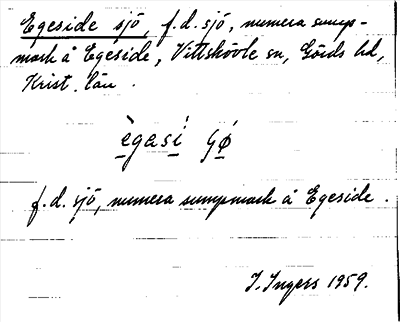 Egeside sjö, f.d. sjö, numera sump-
mark å Egeside, Vittskövle sn, Gärds hd,
Krist. län.
ègasí
f.d. sjö, numera sumpmark å Egeside.
I. Ingers 1959.